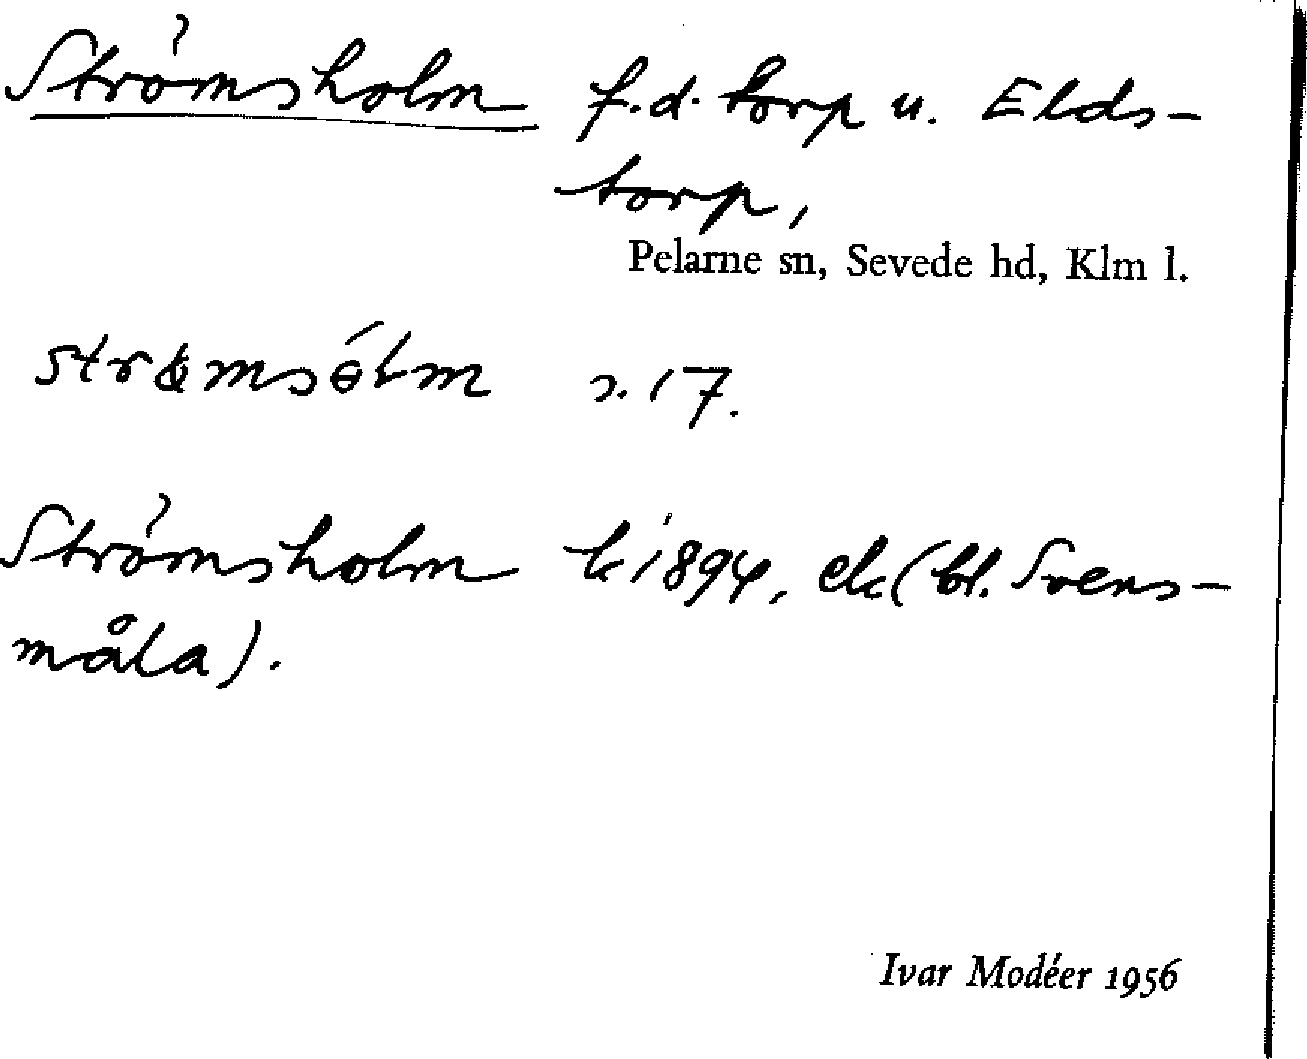 Strömsholm f.d. torp u. Elds-
torp,
Pelarne sn, Sevede hd, Klm l.
s. 17.
Strömsholm k 1894, ek (bl. Svens-
måla).
Ivar Modéer 1956